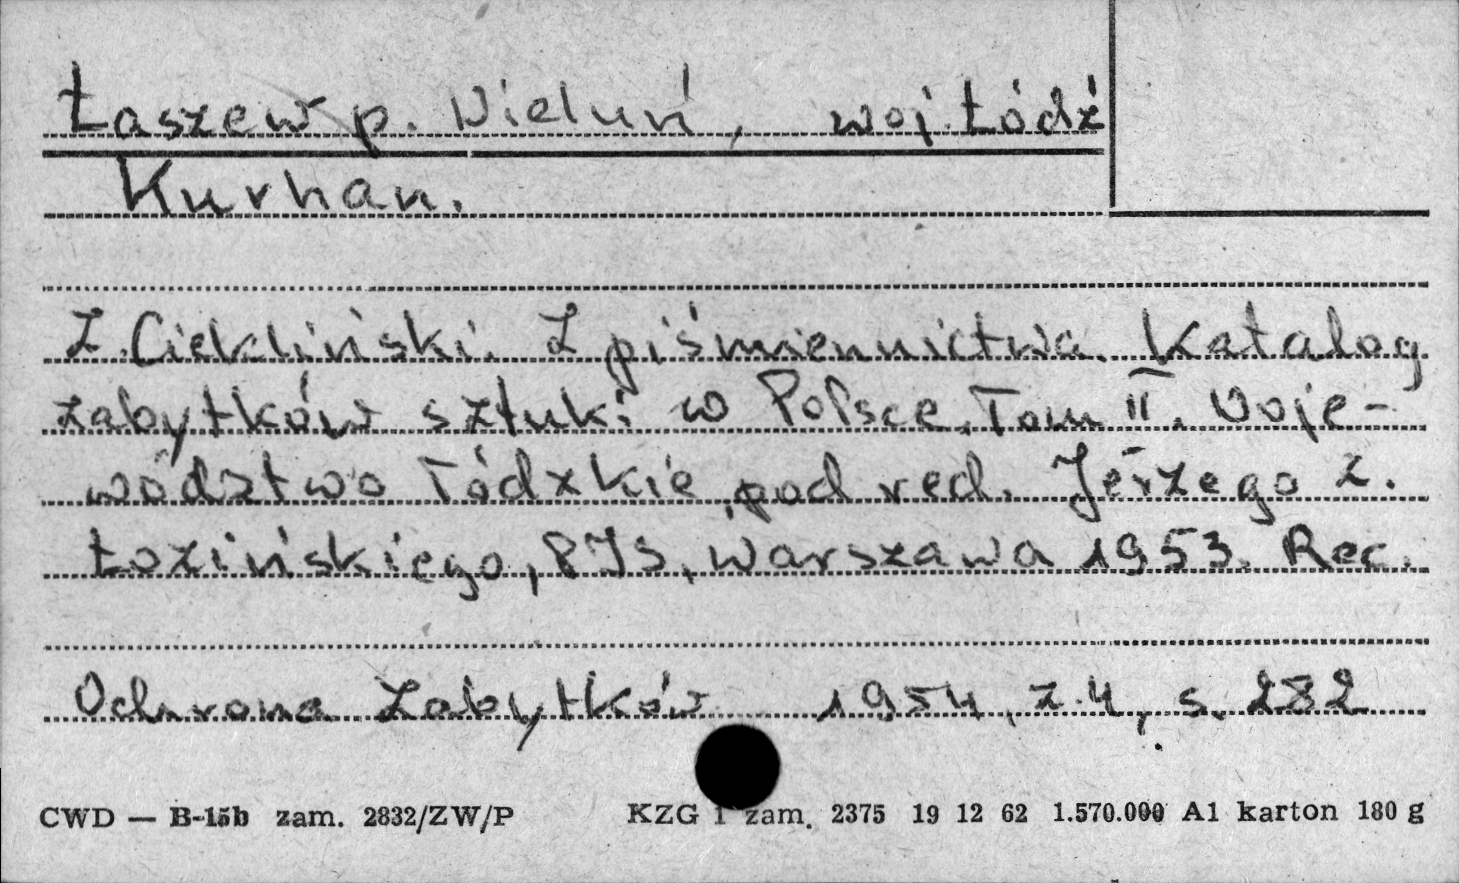 Łaszew p. Wieluń, woj. Łódź
Kurhan.
Z. Ciekliński. Z piśmiennictwa. Katalog
zabytków sztuki w Polsce. Tom II. Woje-
wództwo łódzkie, pod red. Jerzego Z.
Łozińskiego, PIS, Warszawa 1953. Rec.
Ochrona Zabytków 1954, z. 4, s. 282
CWD — B-15b zam. 2832/ZW/P KZG 1 zam. 2375 19 12 62 1.570.000 A1 karton 180 g